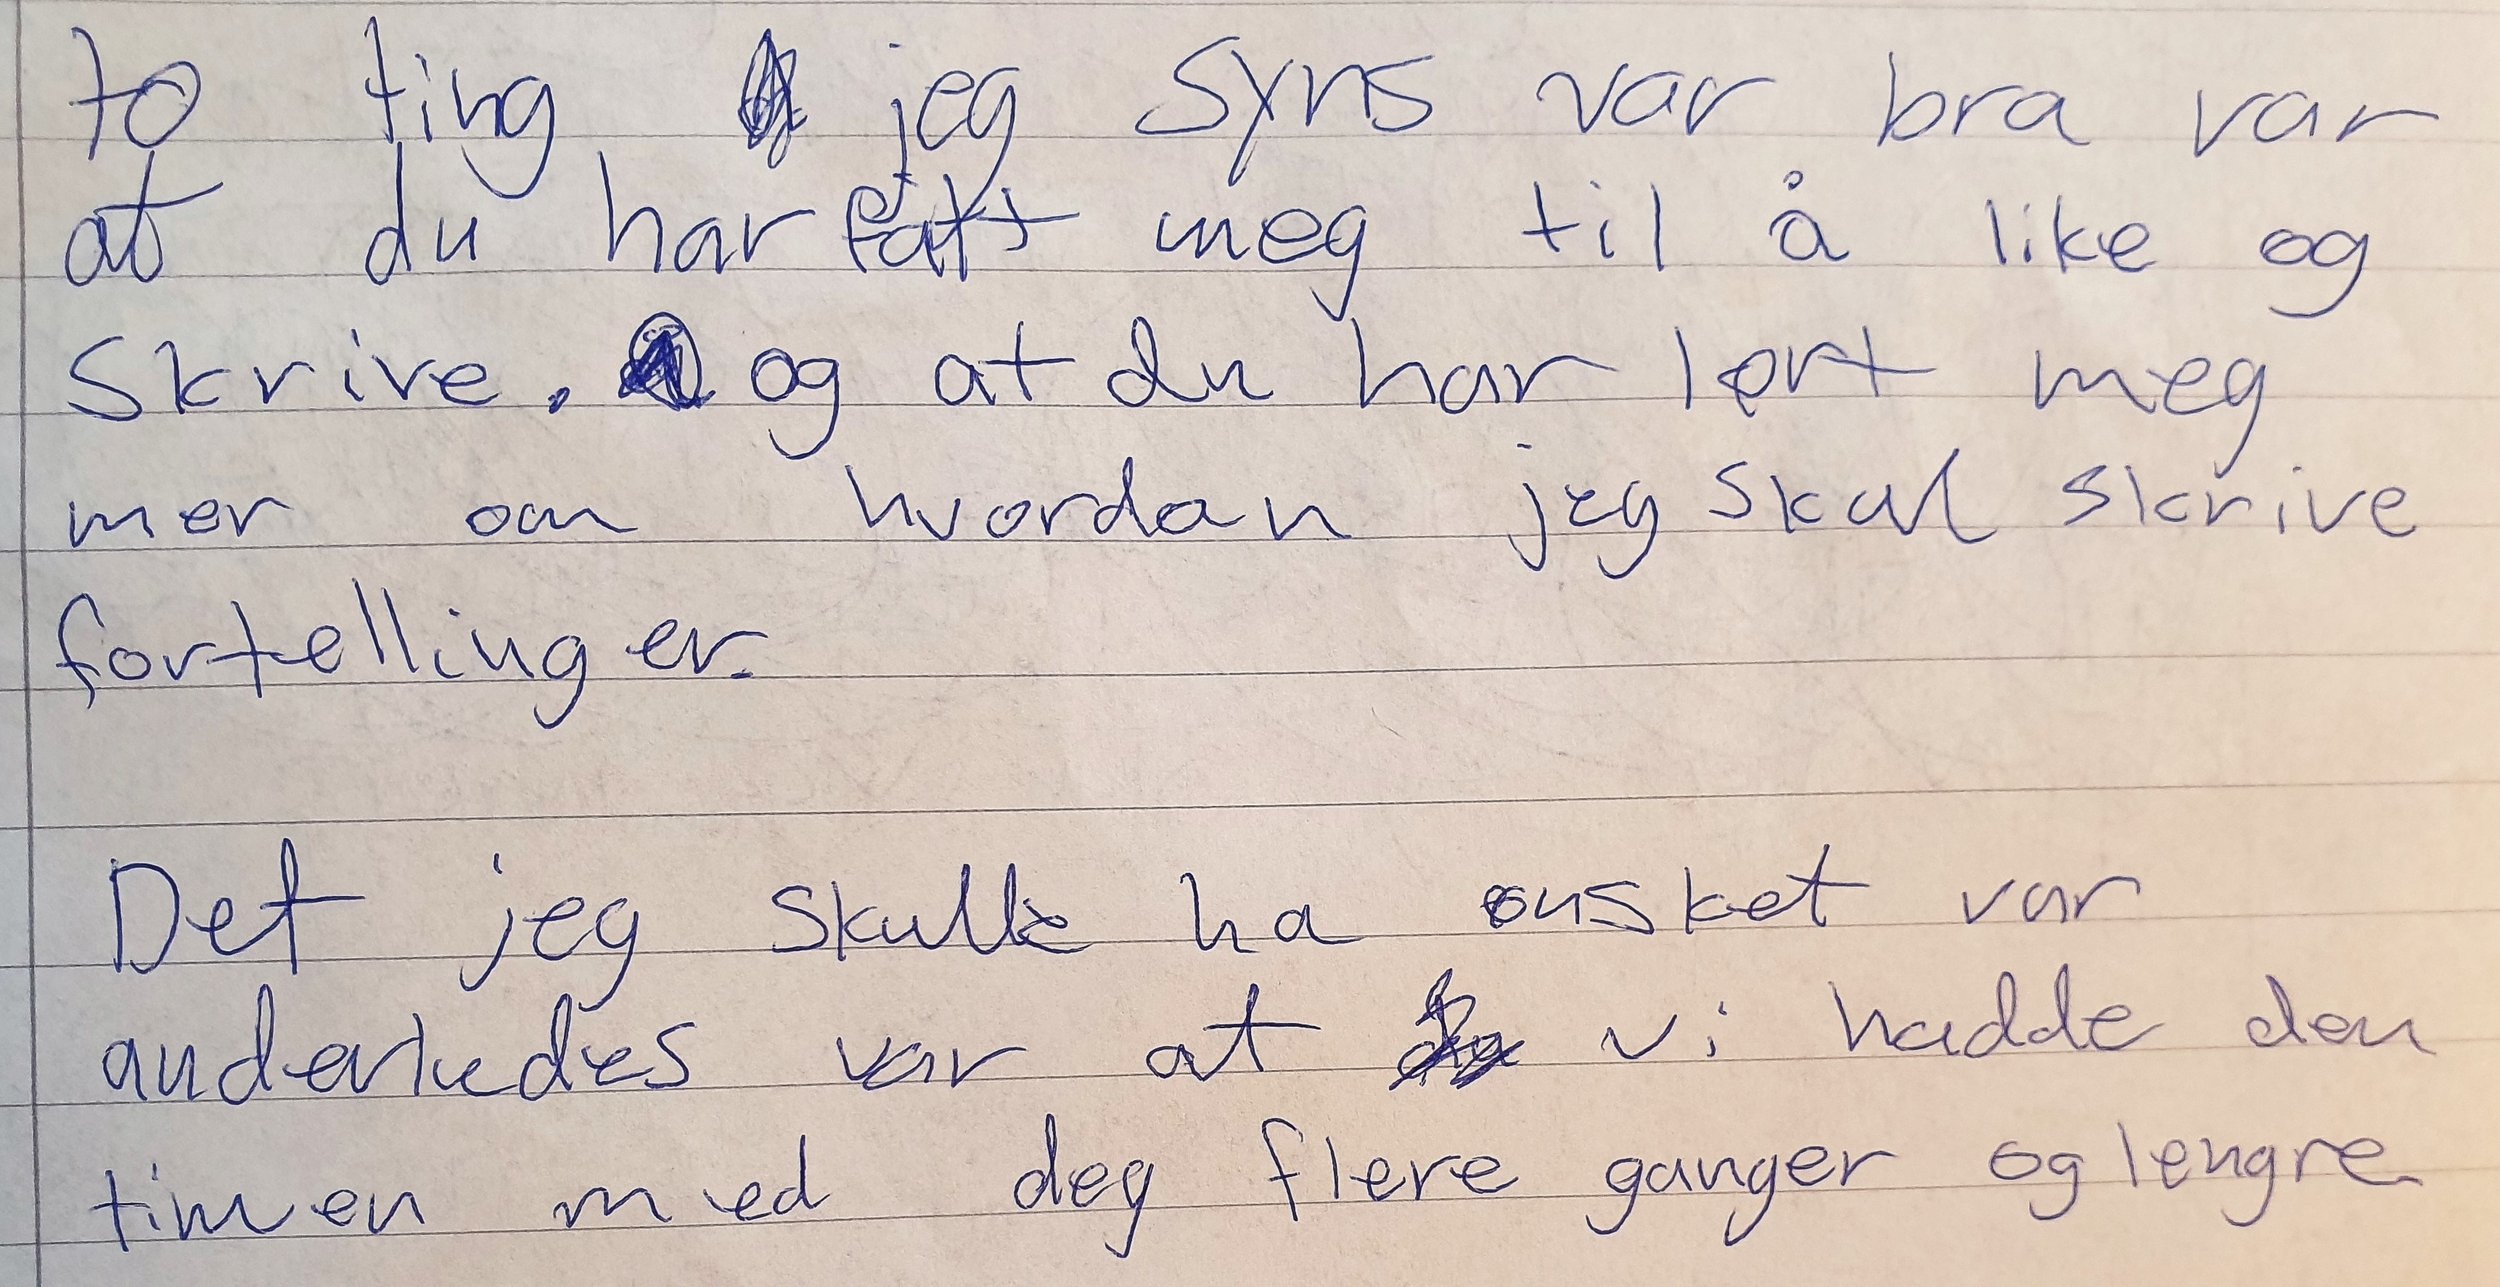 to ting jeg syns var bra var
at du har fått meg til å like og
skrive. og at du har lært meg
mer om hvordan jeg skal skrive
fortellinger.
Det jeg skulle ha ønsket var
anderledes var at vi hadde den
timen med deg flere ganger og lengre